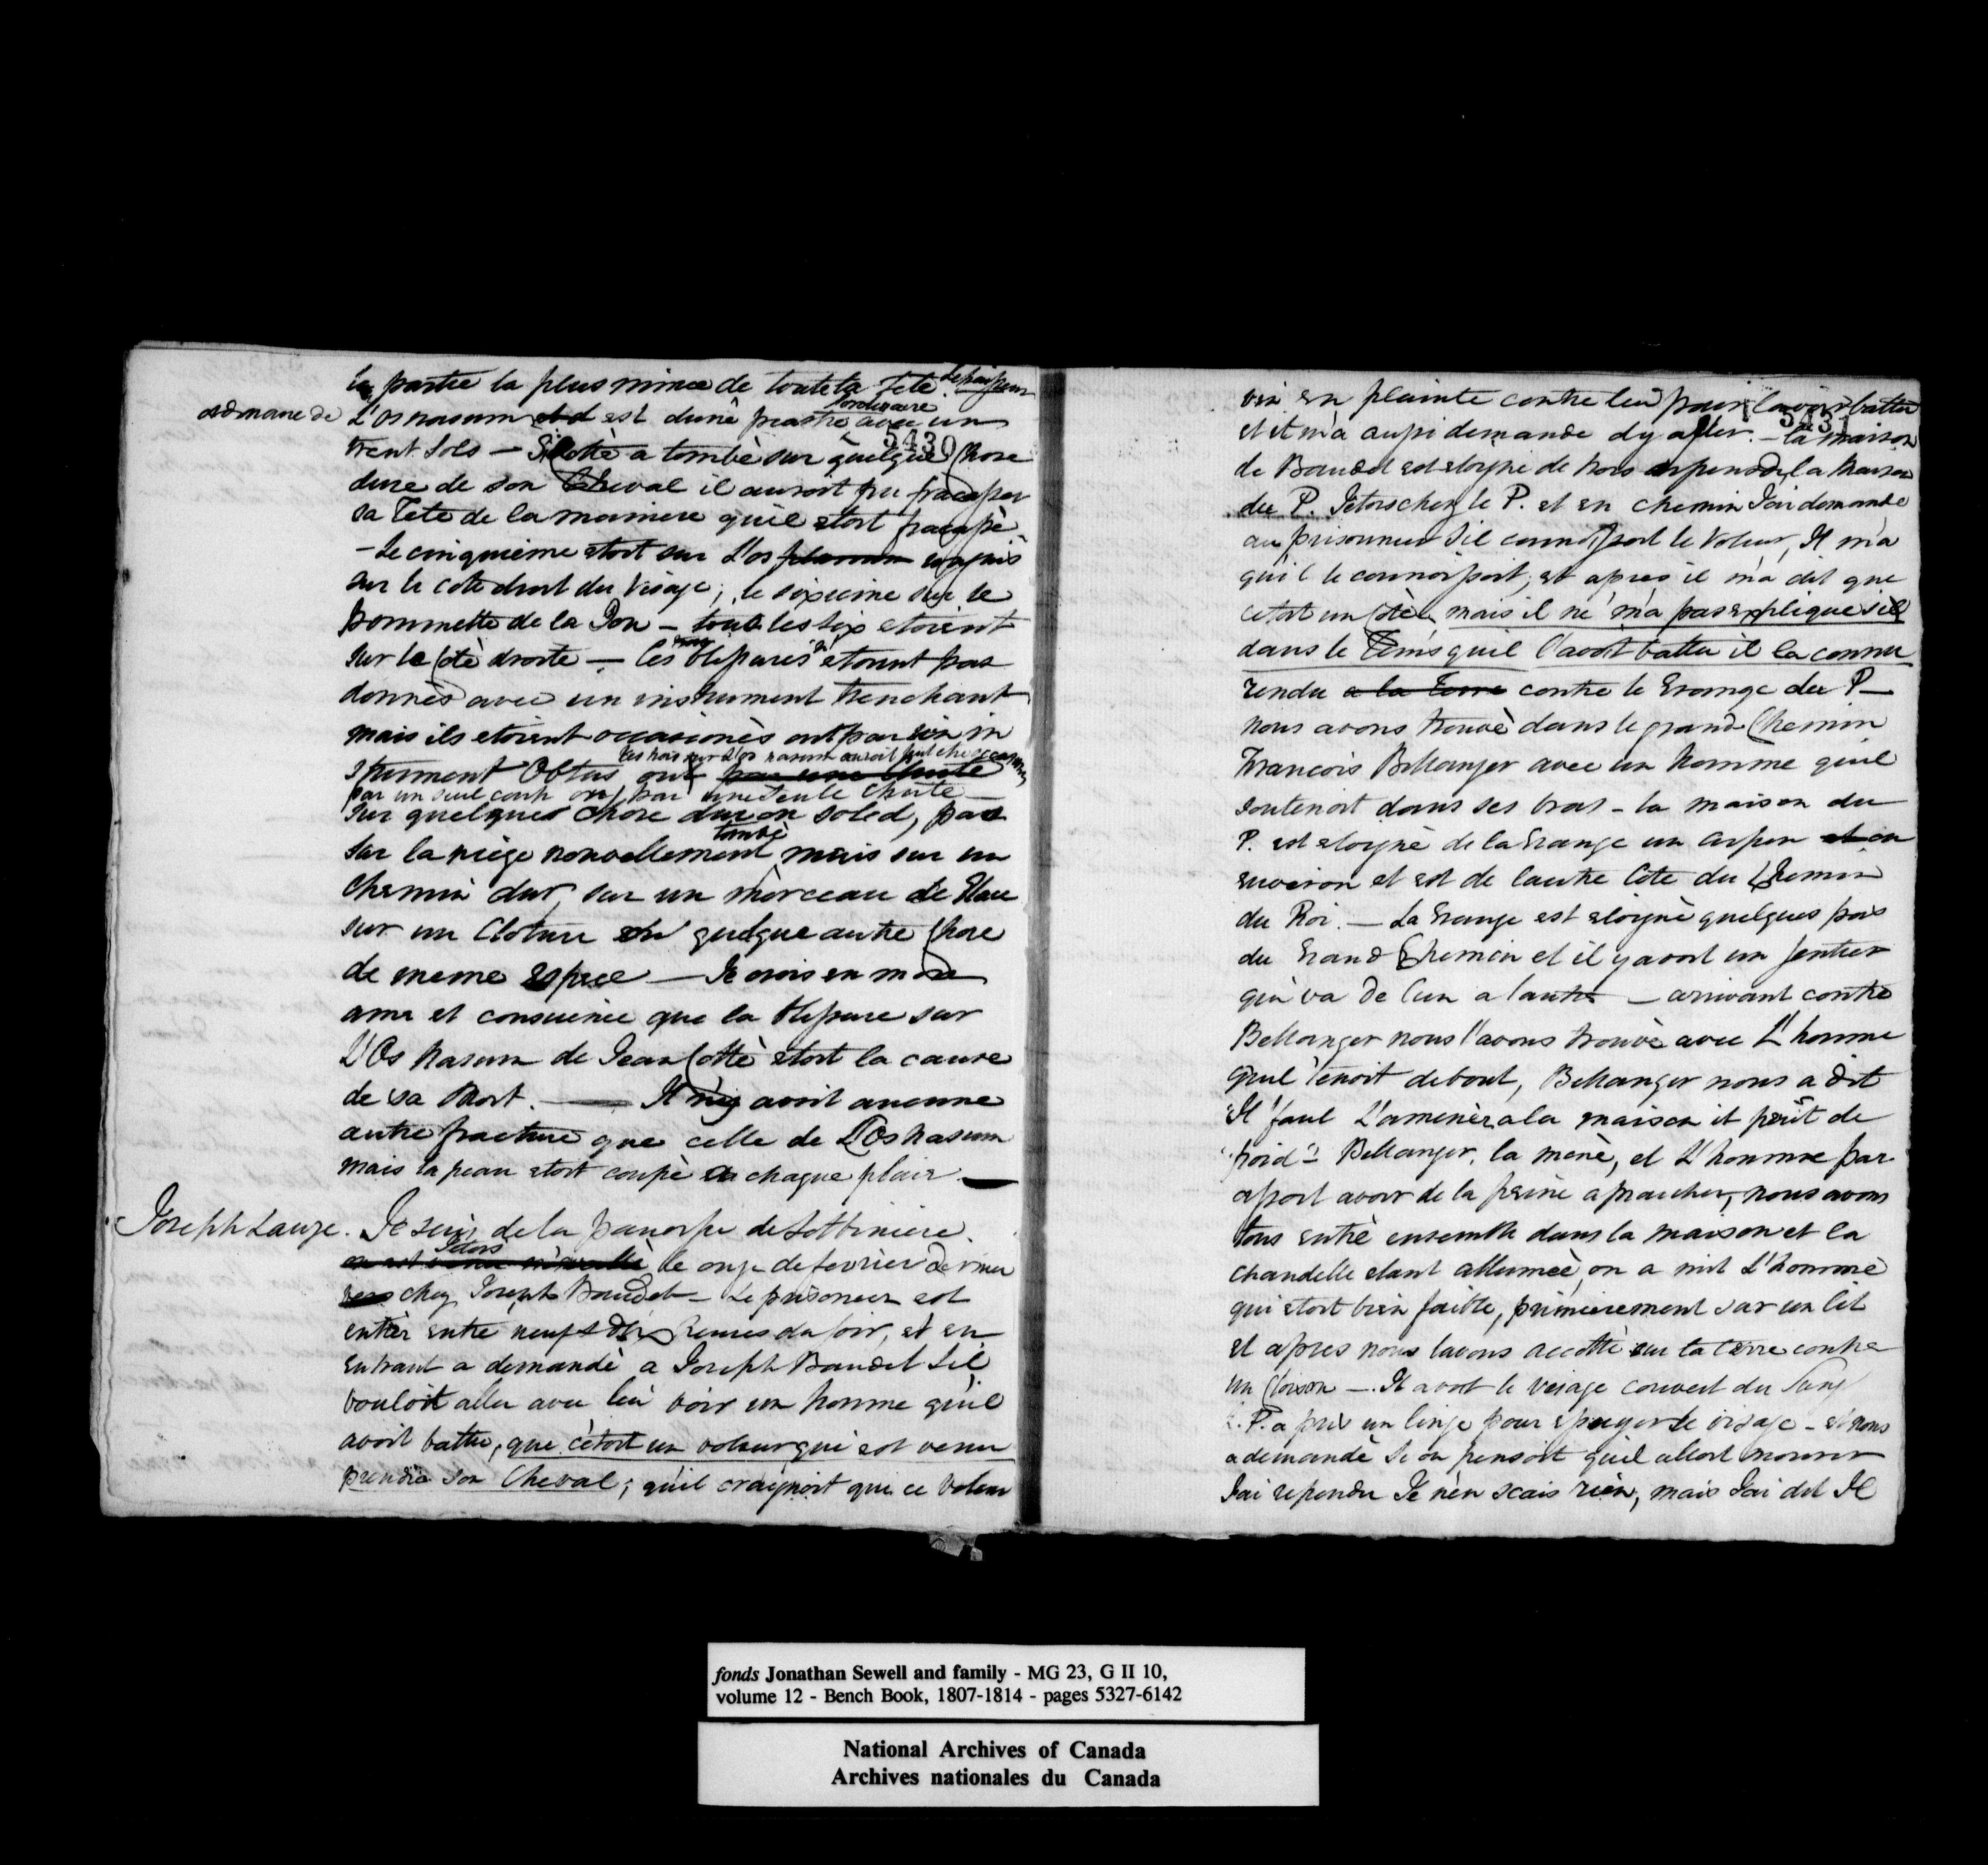 la partie la plus mince de toute la Tete. Lepaisseur
ordinaire de L'os nasum est d'une piastre avec un
5430
trent sols — Si Cottè a tombè sur quelque Chose
dure de son Cheval il auroit pu fracasser
sa Tete de la maniere quil etoit fracassè
— Le cinquieme etoit sur L'os
sur le cote droit du Visage; le sixieme sur le
pommette de la Jou — touts les six etoient
sur le Cotè droite — les blessures etoient pas
donnès avec un instrument trenchant
mais ils etoient occasionès par un in
les trois sur L'os nasum auroit peut etre occasionès
strument Obtus ou par une chute
par un seul coup ou par une seule chute —
sur quelques chose dur ou soled, pas
tombè
sur la niege nouvellement mais sur un
chemin dur, sur un morceau de Glace
sur un Cloture ou quelque autre Chose
de meme Espece — Je crois en mon
ame et conscience que la blessure sur
L'Os nasum de Jean Cottè etoit la cause
de sa Mort. — Il n'y avoit aucunne
autre fracture que celle de L'Os nasum
mais la peau etoit coupè a chaque plaie. —
Joseph Lauze. Je suis de la paroisse de Lotbiniere.
Jetois
le onze de fevrier dernier
chez Joseph Baudet — Le prisoneer est
entrèr entre neuf & dix heures du soir, et en
entrant a demandè a Joseph Baudet sil
vouloit aller avec lui voir un homme qu'il
avoit battu, que c'etoit un voleur qui est venu
prendre son Cheval; qu'il craignoit que ce voleur
vin en plainte contre lui pour l'avoir battu
5431
et it m'a aussi demandé d'y aller. — la maison
de Baudet est eloigné de trois arpens de la maison
du P. Jetois chez le P. et en chemin J'ai demandé
au prisonnier s'il connoissoit le voleur, Il m'a
qu'il le connoissoit; et apres il m'a dit que
cetoit un Cotè, mais il ne m'a pas explique s'il
dans le Tems qu'il l'avoit battu il la connu
rendu a la Terre contre le Grange du P —
nous avons trouvè dans le grand Chemin
Francois Bellanger avec un homme quil
soutenoit dans ses bras — la maison du
P. est eloignè de la Grange un Arpen et on
environ et est de lautre Cote du Chemin
du Roi. — La Grange est eloignè quelques pas
du Grand Chemin et il y avoit un sentier
qui va de l'un a lautre — arrivant contre
Bellanger nous l'avons trouvè avec L'homme
quil tenoit debout, Bellanger nous a dit
"Il faut L'amenèr a la maison it perit de
"froid" Bellanger la menè, et L'homme par
assoit avoir de la peine a marcher, nous avons
tous entrè ensemble dans la maison et la
chandelle etant allumèe, on a mit L'homme
qui etoit bien faible, primierement sur un lit
et apres nous lavons accottè sur la terre contre
un Cloison —. It avoit le visage couvert du Sang
P. a prix un linge pour essuyer le visage — et nous
a demandè si on pensoit quil alloit mourrir
J'ai repondu Je nèn scais rièn, mais J'ai dit Il
fonds Jonathan Sewell and family - MG 23, G II 10,
volume 12 - Bench Book, 1807-1814 - pages 5327-6142
National Archives of Canada
Archives nationales du Canada